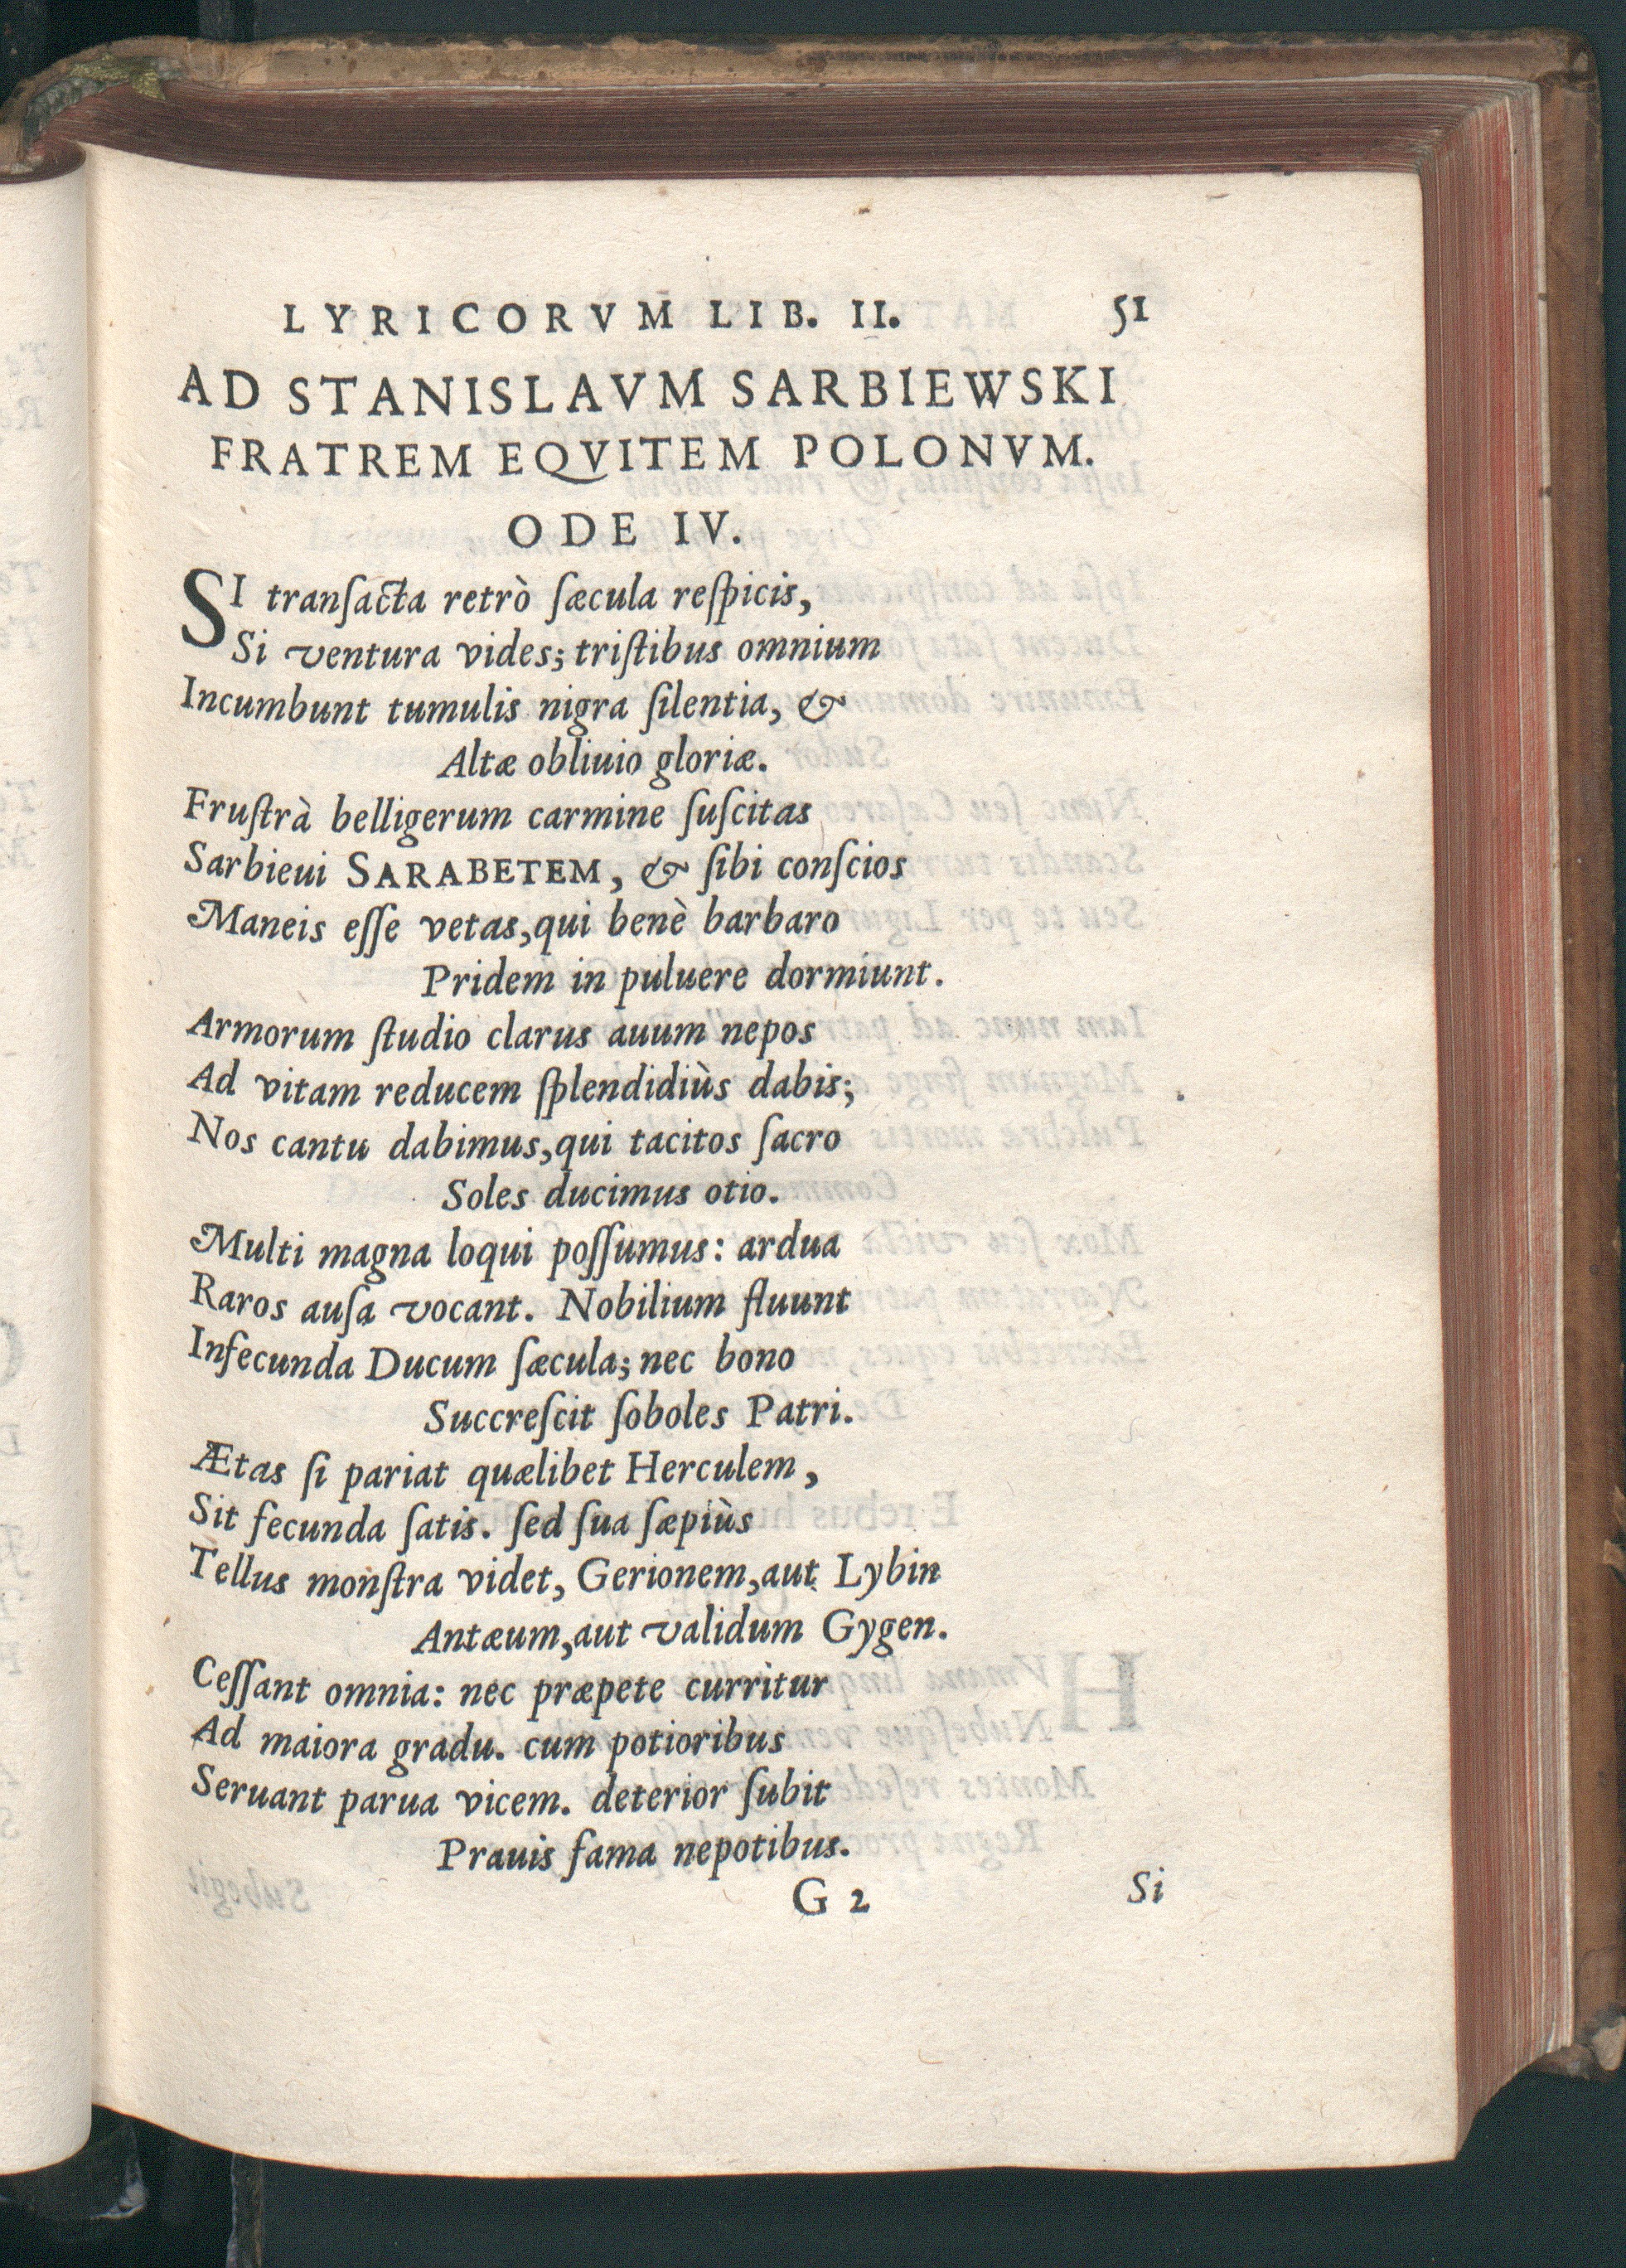 LYRICORVM LIB. II. 51
AD STANISLAVM SARBIEWSKI
FRATREM EQVITEM POLONVM.
ODE IV.
SI tranſacta retrò ſæcula reſpicis,
Si ventura vides; triſtibus omnium
Incumbunt tumulis nigra ſilentia, &
Altæ obliuio gloriæ.
Fruſtrà belligerum carmine ſuſcitas
Sarbieui SARABETEM, & ſibi conſcios
Maneis eſſe vetas, qui benè barbaro
Pridem in puluere dormiunt.
Armorum ſtudio clarus auum nepos
Ad vitam reducem ſplendidiùs dabis;
Nos cantu dabimus, qui tacitos ſacro
Soles ducimus otio.
Multi magna loqui poſſumus: ardua
Raros auſa vocant. Nobilium fluunt
Infecunda Ducum ſæcula; nec bono
Succreſcit ſoboles Patri.
Ætas ſi pariat quælibet Herculem,
Sit fecunda ſatis. ſed ſua ſæpiùs
Tellus monſtra videt, Gerionem, aut Lybin
Antæum, aut validum Gygen.
Ceſſant omnia: nec præpete curritur
Ad maiora gradu. cum potioribus
Seruant parua vicem. deterior ſubit
Prauis fama nepotibus.
G 2 Si